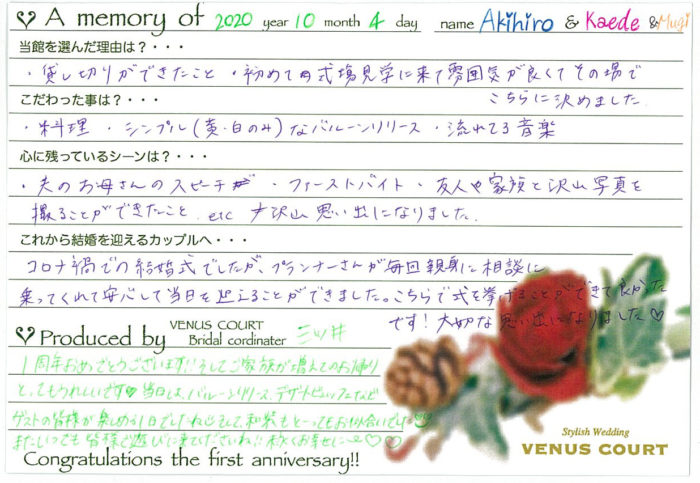 A memory of 2020 year 10 month 4 day name Akihiro & Kaede & Mugi
当館を選んだ理由は？・・・
・貸し切りができたこと ・初めて式場見学に来て雰囲気が良くてその場で
こちらに決めました
こだわった事は？・・・
・料理 ・シンプル(黄・白のみ)なバルーンリリース ・流れてる音楽
心に残っているシーンは？・・・
・夫のお母さんのスピーチ ・ファーストバイト ・友人や家族と沢山写真を
撮ることができたこと etc 沢山思い出になりました。
これから結婚を迎えるカップルへ・・・
コロナ禍での結婚式でしたが、プランナーさんが毎回親身に相談に
乗ってくれて安心して当日を迎えることができました。こちらで式を挙げることができて良かった
です！大切な思い出になりました♡
Produced by VENUS COURT Bridal cordinater 三ツ井
1周年おめでとうございます!!そしてご家族が増えてのお帰り
とってもうれしいです♡当日は、バルーンリリース、デザートビュッフェなど
ゲストの皆様が楽しめる1日でしたね そして和装もとーってもお似合いでした
またいつでも皆様で遊びに来てくださいね!! 末永くお幸せに〜♡♡
Congratulations the first anniversary!!
Stylish Wedding
VENUS COURT